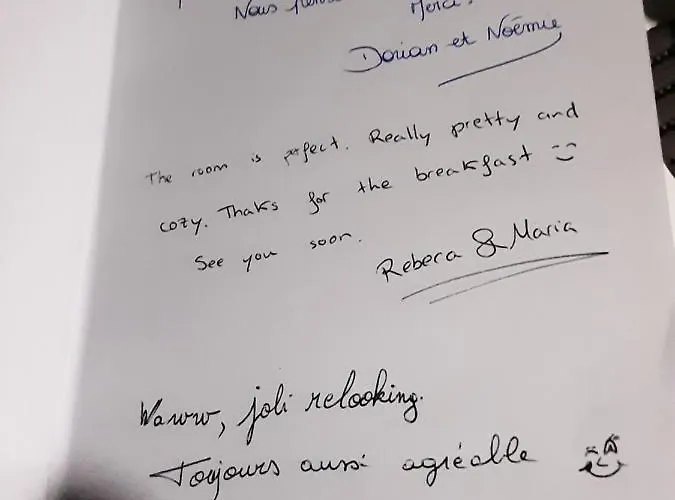 Nous
Merci.
Dorian et Noémie
The room is perfect. Really pretty and
cozy. Thaks for the breakfast :)
See you soon.
Rebeca & Maria
Wawww, joli relooking.
Toujours aussi agréable